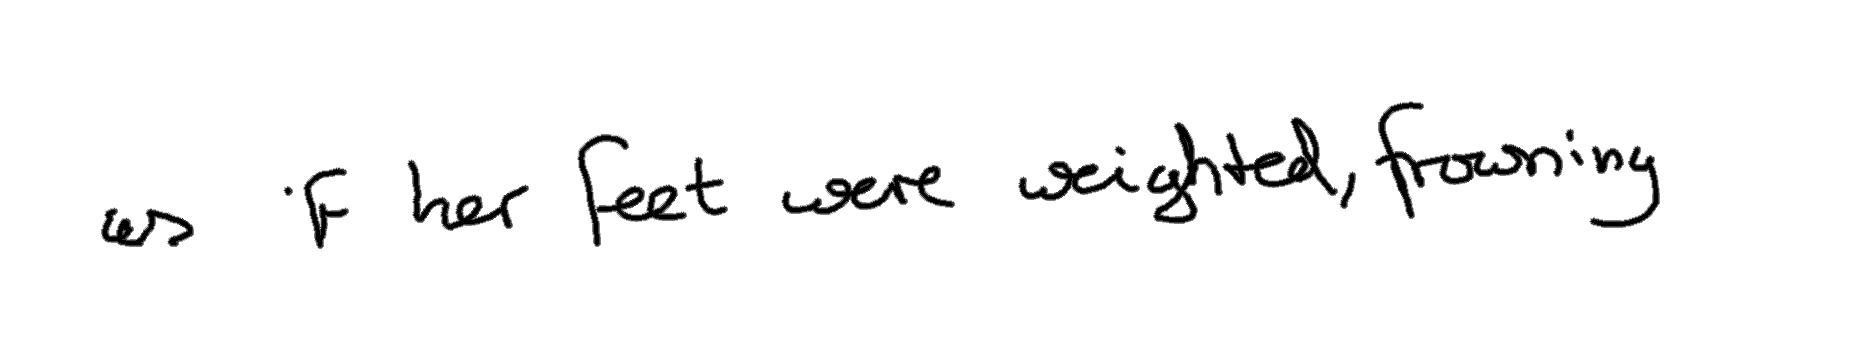 as if her feet were weighted, frowning